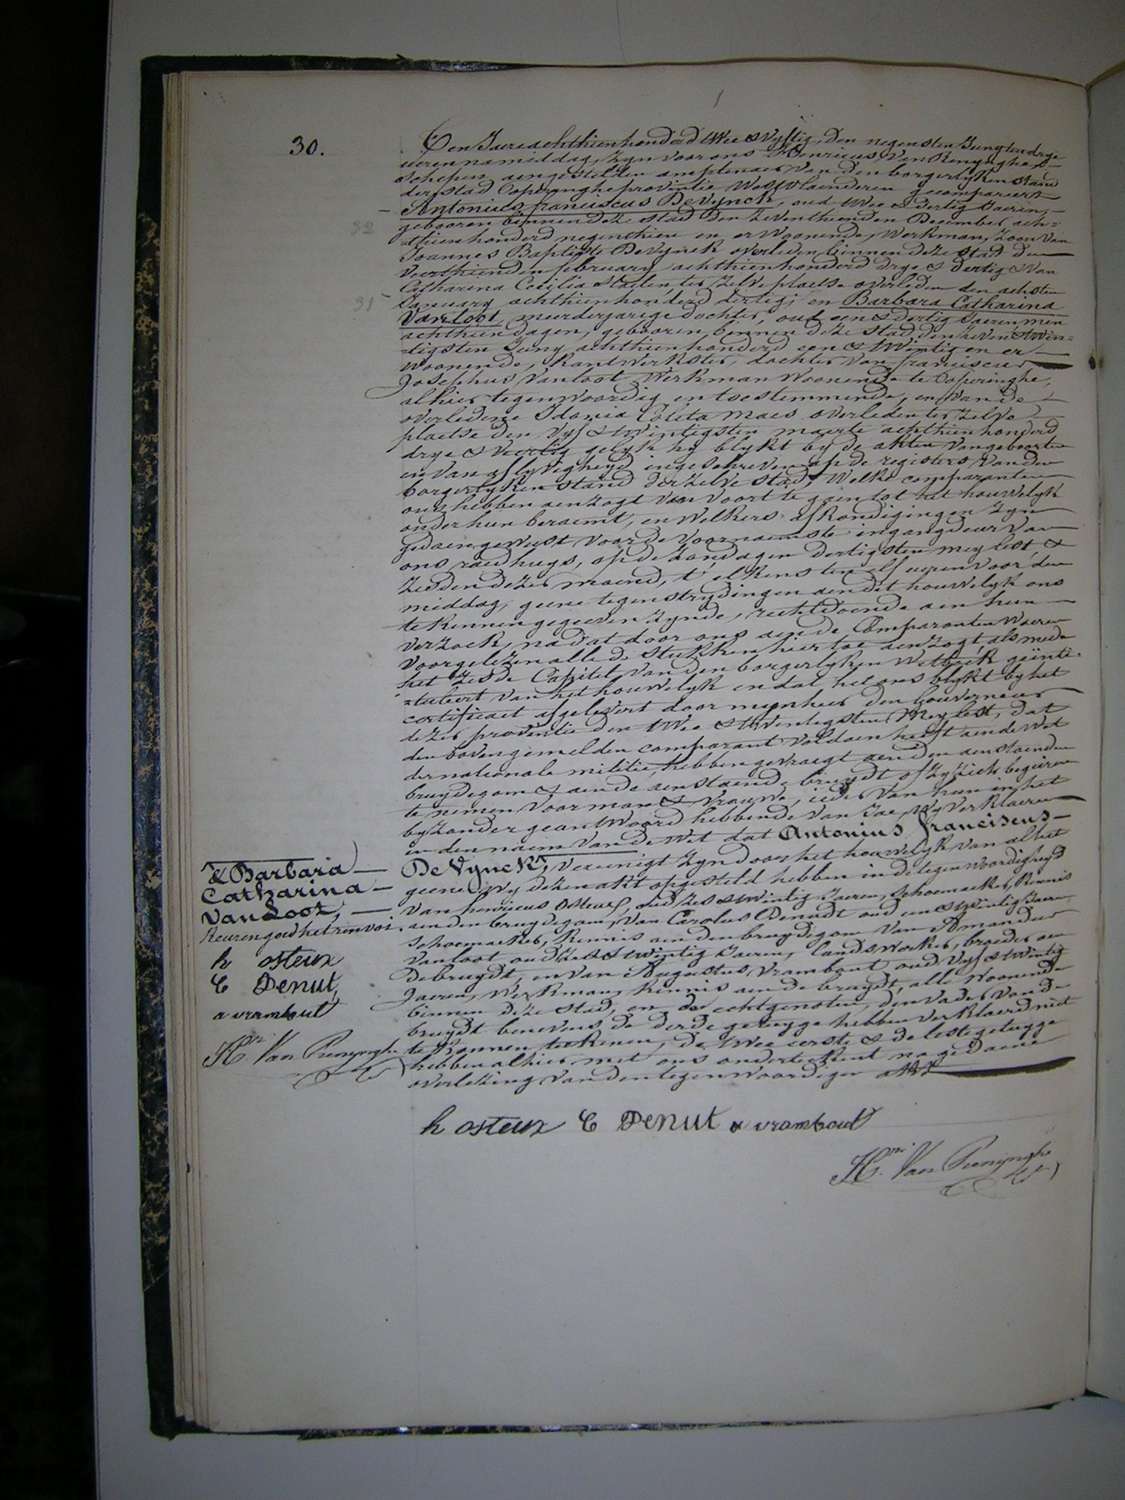 30.
Den Jaere achthien honderd twee & vyftig, den negensten Juny ten drye
ueren namiddag, zyn voor ons Henricus Van Renynghe,
Schepen aengestelden amptenaer van den borgerlyken stand
der Stad Poperinghe provintie West Vlaenderen gecompareert
Antonius franciscus De Vynck, oud twee en dertig Jaeren,
32
gebooren binnen deze stad den zeventhienden December ach-
thien honderd negenthien en er Woonende, Werkman, Zoon Van
Joannes Baptiste De Vynck overleden binnen deze stad den
Veerthienden february achthien honderd drye & dertig & Van
Catharina Cecilia ter zelve plaetse overleden den achsten
31
January achthien honderd dertig; en Barbara Catharina
Van loot, meerderjarige dochter, oud een & dertig Jaeren min
achthien dagen, gebooren binnen deze stad den zeven & twin-
tigsten Juny achthien honderd een & twintig en er
woonende, kant Werkster, dochter van franciscus
Josephus Van loot Werkman Woonende te Poperinghe,
alhier tegenwoordig en toestemmende, en van de
overledene Idonia Coleta Maes overleden ter zelve
plaetse den Vyf & twintigsten maerte achthien honderd
drye & Veertig gelyk hy blykt by de akten van geboorten
en van aflyvigheyd ingeschreven op de registers van den
borgerlyken stand der zelve stad; Welke comparanten
ons hebben aenzogt van voort te gaen tot het houwelyk
onder hun beraemt, en welkers afkondigingen zyn
gedaen geweest voor de voornaemste ingangdeur van
ons raedhuys, op de zondagen dertigsten mey lest &
zesden dezer maend, t'elkens ten elf ueren voor den
middag; geene tegenstrydingen aen dit houwelyk ons
te kennen gegeven zynde, rechtdoende aen hun
verzoek, na dat door ons aen de Comparanten Waeren
voorgelezen alle de Stukken hier toe aenzogt als mede
het zesde Capitel van den borgerlyken Wetboek geinti-
tuleert van het houwelyk en dat het ons blykt by het
certificaet afgelevert door mynheer den Gouverneur
dezer provintie den twee & twintigsten Mey lest, dat
den bovengemelden comparant voldaen heeft aen de Wet
der nationale militie, hebben gevraegt aen den aenstaenden
bruydegom & aen de aenstaende bruydt of zy zich begeiren
te nemen voor man & vrouwe, ieder van hun in het
byzonder geantwoord hebbende van Jae, Wy Verklaeren
in den naem van de Wet dat Antonius franciscus
& Barbara
Catharina
Van Loot,
Keuren goed het renvoi
h osteux
C Denut,
a vrambout
Hri Van Renynghe
De Vynck, vereenigt zyn door het houwelyk van al het
geene Wy dezen akt opgesteld hebben in de tegenwoordigheyd
van henricus Osteux, oud zes & twintig Jaeren, Schoenmaeker, Kennis
aen den bruydegom, van Carolus Denudt oud een & twintig Jaeren
Schoenmaeker, Kennis aen den bruydegom van Amandus
Van loot oud zes & twintig Jaeren, landswerker, broeder aen
de bruydt, en van Augustus Vrambout oud vyf & twintig
Jaeren, Werkman, Kennis aen de bruydt, alle Woonende
binnen deze Stad, en de echtgenoten, den Vader van de
bruydt benevens de derde getuyge hebben verklaerd niet
te konnen teekenen, de twee eerste & de leste getuygge
hebben alhier met ons onderteekent na gedaene
overlezing van den tegenwoordigen akt
h osteux C Denut a vrambout
Hri Van Renynghe